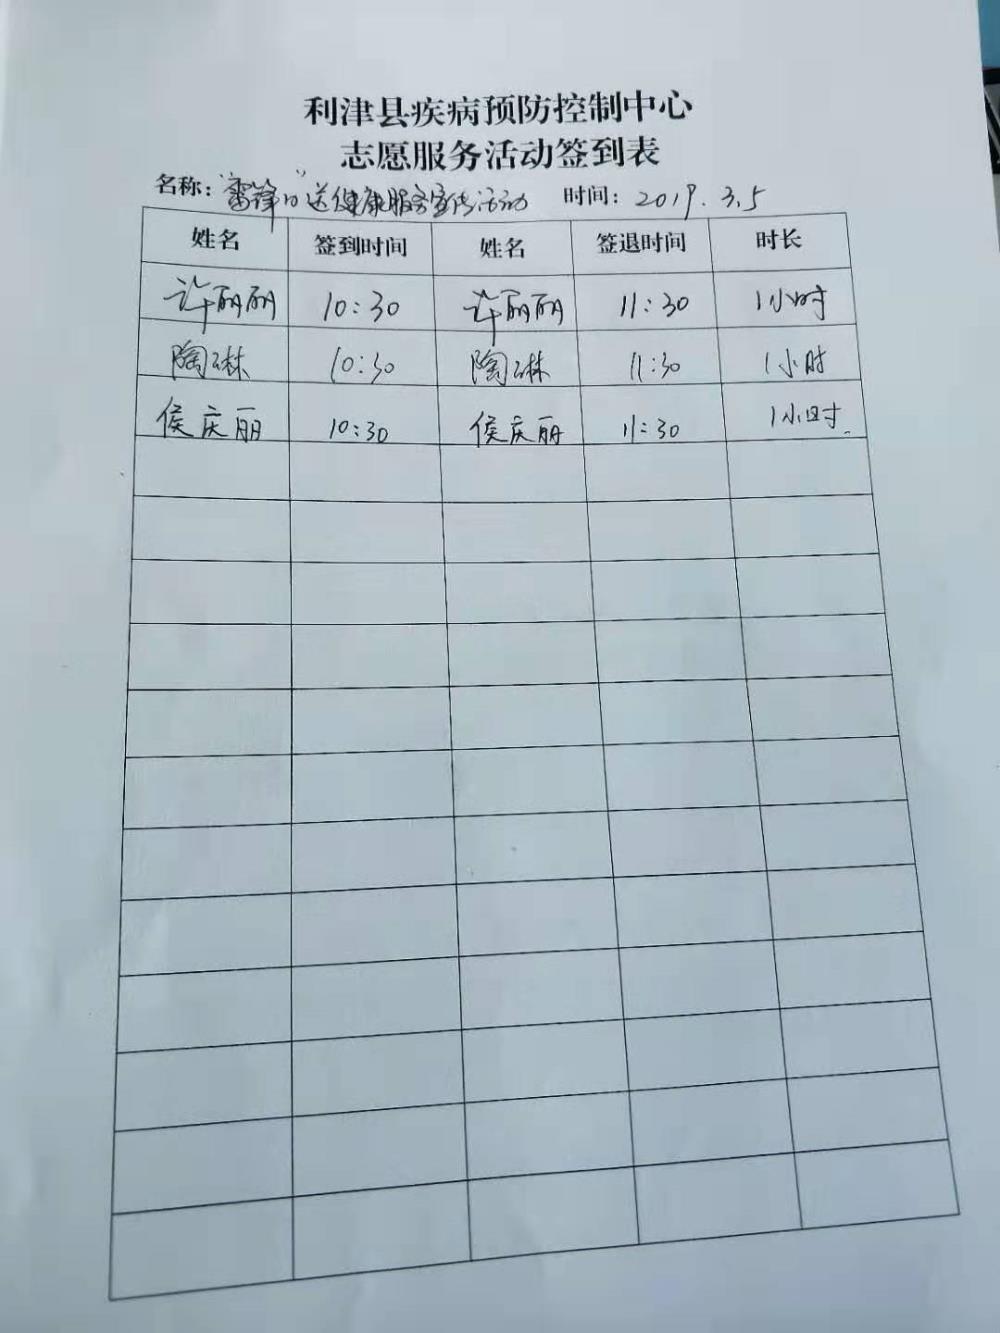 利津县疾病预防控制中心
志愿服务活动签到表
名称：“雷锋日”送健康服务宣传活动 时间：2019.3.5
姓名 签到时间 姓名 签退时间 时长
许丽丽 10:30 许丽丽 11:30 1小时
陶琳 10:30 陶琳 11:30 1小时
侯庆丽 10:30 侯庆丽 11:30 1小时.